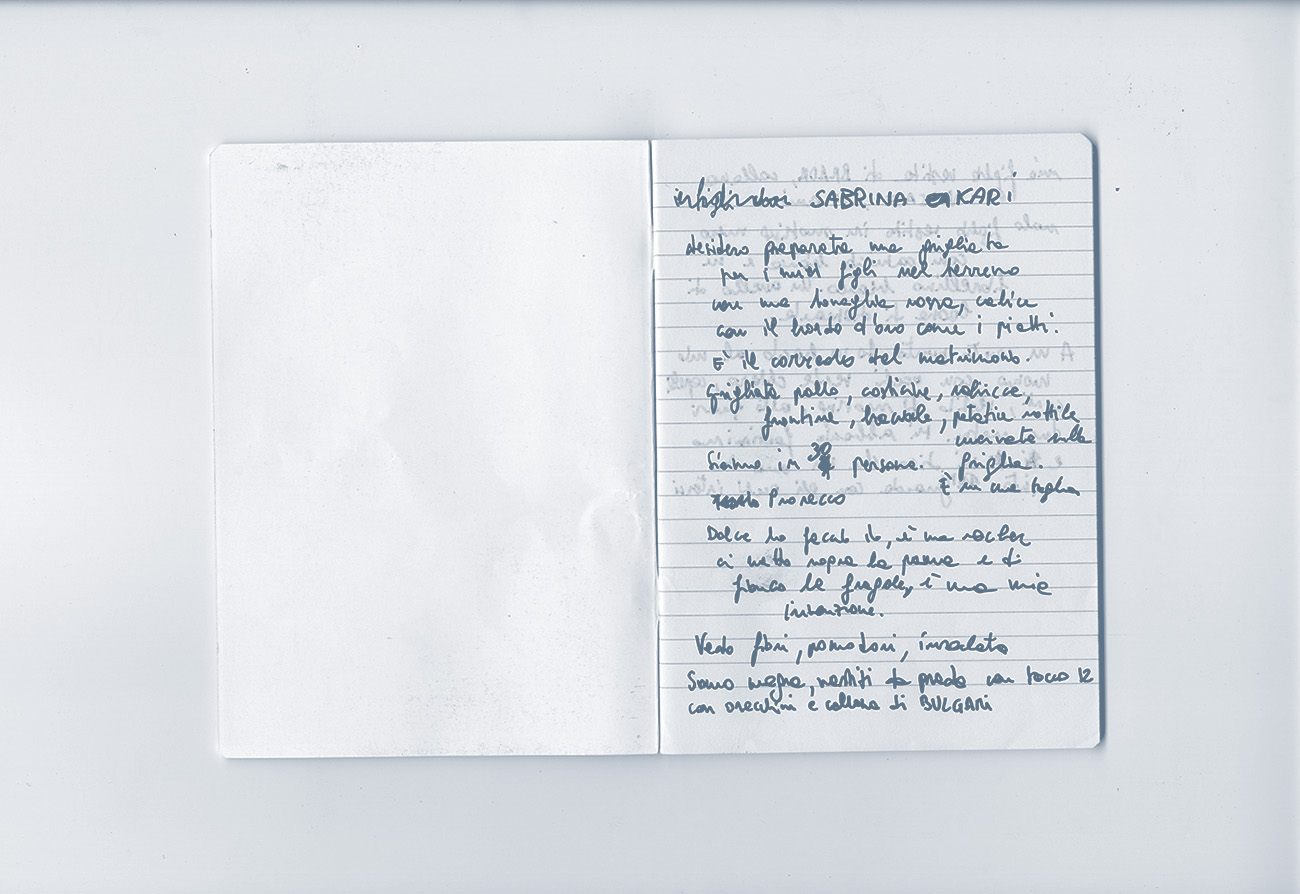 SABRINA KARI
desidero preparare una grigliata
per i miei figli nel terreno
con una tovaglia rossa, calice
con il bordo d'oro come i piatti.
È il corredo del matrimonio.
Grigliata pollo, costine, salsicce,
braciole, patatine sottile
sulla
Siamo in 30 persone. griglia.
È in una teglia
Prosecco
Dolce ho fecato io, è una
ci metto sopra la panna e di
fianco le fragole, è una mia
invenzione.
Vedo fiori, pomodori, insalata
Sono magra, vestiti da prada con tacco 12
con orecchini e collana di BULGARI